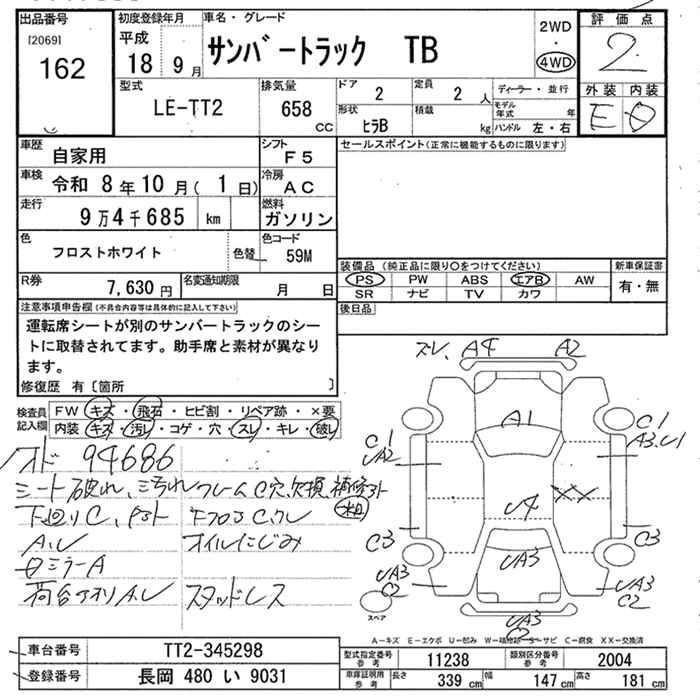 出品番号
[2069]
162
初度登録年月
平成
18 9月
車名・グレード
サンバートラック TB
2WD
・
4WD
評価点
2
外装 内装
E D
型式
LE-TT2
排気量
658
cc
ドア
2
定員
2 人
形状
ヒラB
積載
kg
ディーラー・並行
モデル年式 年
ハンドル 左・右
車歴
自家用
シフト
F5
車検
令和 8年10月( 1日)
冷房
AC
走行
9万4千685 km
燃料
ガソリン
色
フロストホワイト
色替
色コード
59M
R券
7,630 円
名変通知期限
月 日
セールスポイント(正常に機能するものに限ります)
装備品 (純正品に限り○をつけてください)
PS PW ABS エアB AW
SR ナビ TV カワ
新車保証書
有・無
後日品
注意事項申告欄(不具合内容等は具体的に記入して下さい)
運転席シートが別のサンバートラックのシー
トに取替されてます。助手席と素材が異なり
ます。
修復歴 有〔箇所 〕
検査員
記入欄
FW キズ・飛石・ヒビ割・リペア跡・×要
内装 キズ・汚レ・コゲ・穴・スレ・キレ・破レ
94686
シート破れ、汚れ フレームC穴、欠損、補修アト
下回りC、
A.U
オイルにじみ
ミラーA
荷台アオリA.U スタッドレス
ズレ、A4 A2
A1
C1
UA2
C1
A3.U1
U4
XX
C3
C3
UA3
UA3
C2
UA3
C2
UA3
C2
スペア
A-キズ E-エクボ U-凹み W-補修跡 S-サビ C-腐食 XX-交換済
車台番号
TT2-345298
登録番号
長岡 480 い 9031
型式指定番号
参考
11238
類別区分番号
参考
2004
車庫証明用
参考
長さ 339 cm
幅 147 cm
高さ 181 cm